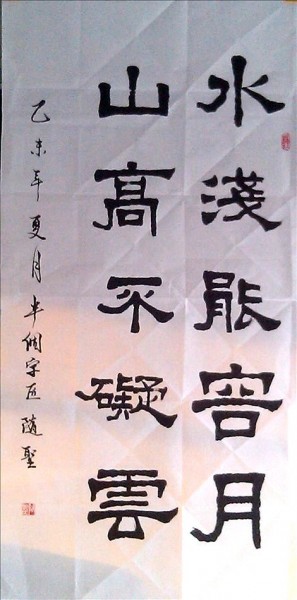 水淺能容月
山高不礙雲
乙未年夏月半個字匠隨聖